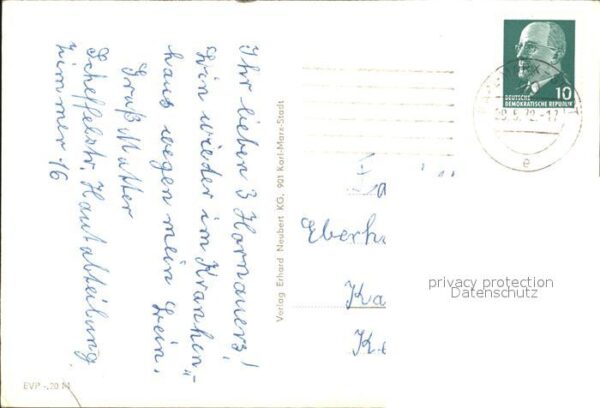 Ihr lieben 3 Hornauers!
Bin wieder im Kranken-
haus wegen mein Bein.
Gruß Mutter
Scheffelstr. Hautabteilung,
Zimmer 16
Verlag Erhard Neubert KG, 901 Karl-Marx-Stadt
EVP -,20 M
10
DEUTSCHE
DEMOKRATISCHE REPUBLIK
.5.72-17
e
Eberh
Ka
K
privacy protection
Datenschutz